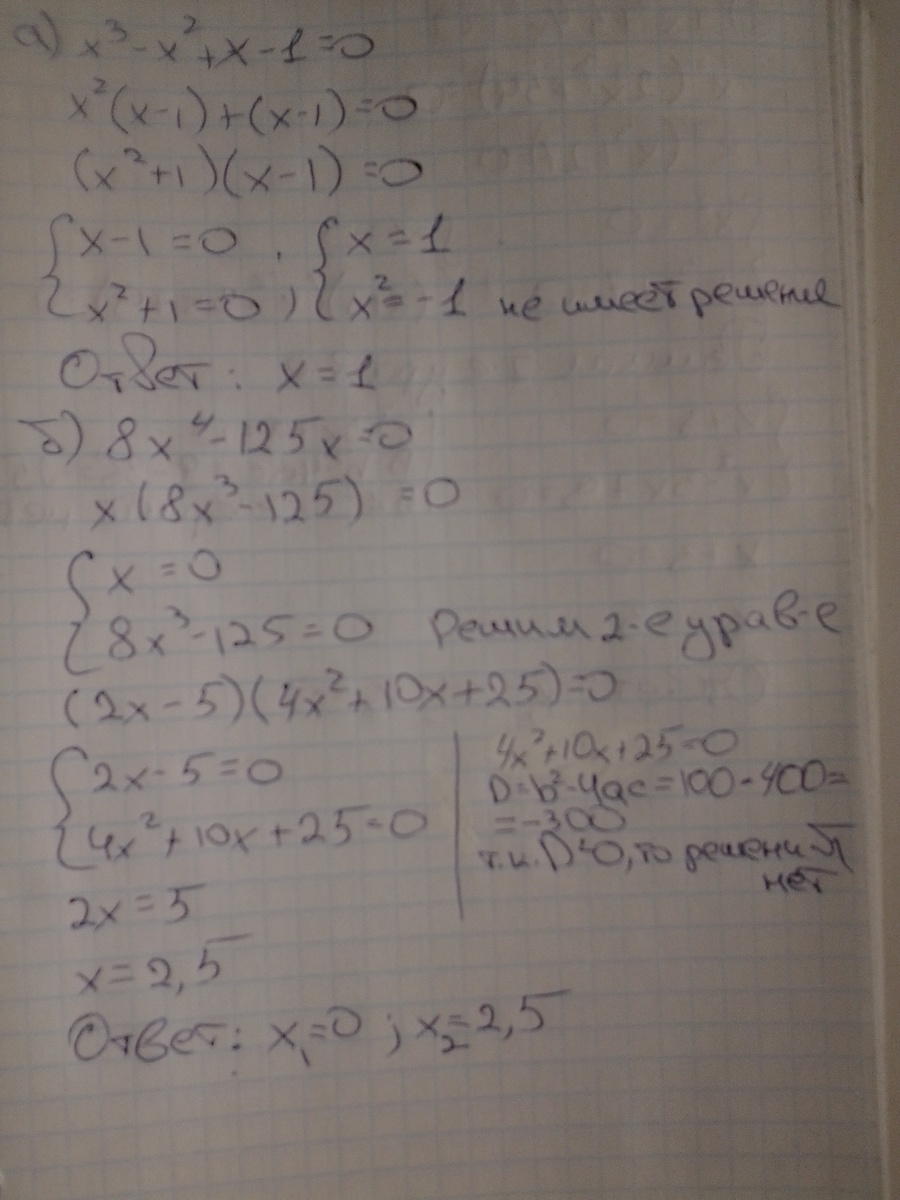 а) x³-x²+x-1=0
x²(x-1)+(x-1)=0
(x²+1)(x-1)=0
{x-1=0 , {x=1
{x²+1=0 ; {x²=-1 не имеет решение
Ответ: x=1
б) 8x⁴-125x=0
x(8x³-125)=0
{x=0
{8x³-125=0 Решим 2-е урав-е
(2x-5)(4x²+10x+25)=0
{2x-5=0
{4x²+10x+25=0
2x=5
x=2,5
4x²+10x+25=0
D=b²-4ac=100-400=
=-300
т.к. D<0, то решений
нет
Ответ: x₁=0 ; x₂=2,5